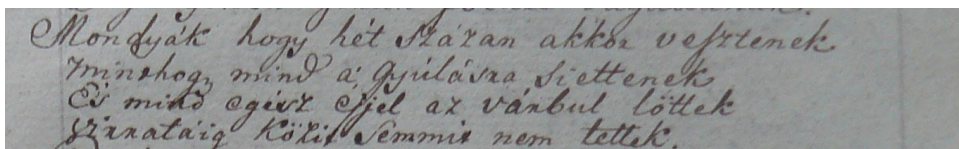 Mondyák hogy hét százan akkor vesztenek
minthogy mind a' gyúlásra siettenek
És mind egész éjjel az várbul lőttek
Semmit nem tettek.